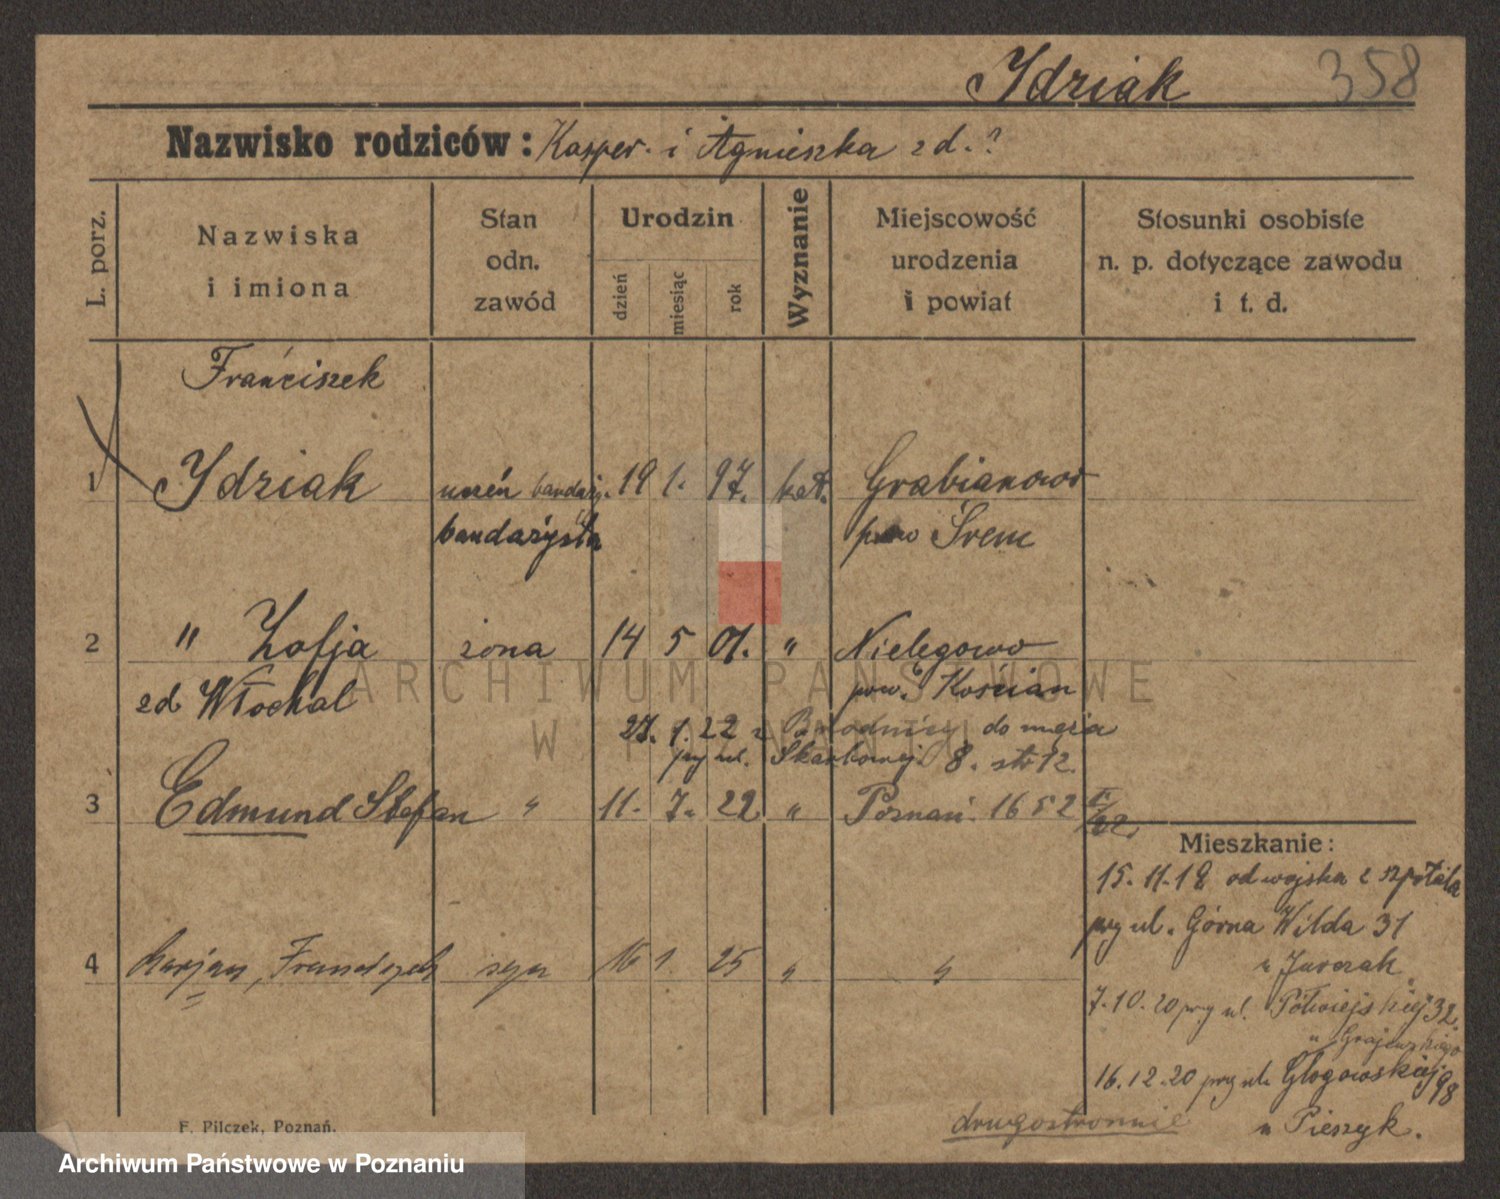 Idziak 358
Nazwisko rodziców: Kasper i Agnieszka z d. ?
L. porz.
Nazwiska
i imiona
Stan
odn.
zawód
Urodzin
dzień
miesiąc
rok
Wyznanie
Miejscowość
urodzenia
i powiat
Stosunki osobiste
n. p. dotyczące zawodu
i t. d.
Franciszek
1 Idziak uczeń bandaży. 19 1. 97. kat. Grabianowo
bandażysta pow Śrem
2 " Zofja żona 14 5 01. " Nielęgowo
zd Włochal pow. Kościan
27. 1. 22 z do męża
przy ul. Skarbowej 8. str 12.
3 Edmund Stefan " 11. 7. 22 " Poznań. 1652
Mieszkanie:
15. 11. 19 od wojska z szpitala
przy ul. Górna Wilda 31
4 Marjan, Franciszek syn 16 1. 25 " "
u Jurczak
7.10.20 przy ul. Półwiejskiej 32.
u Grajewskiego
16.12.20 przy ul. Głogowskiej 98
u Pieszyk.
drugostronnie
F. Pilczek, Poznań.
ARCHIWUM PAŃSTWOWE
W POZNANIU
Archiwum Państwowe w Poznaniu